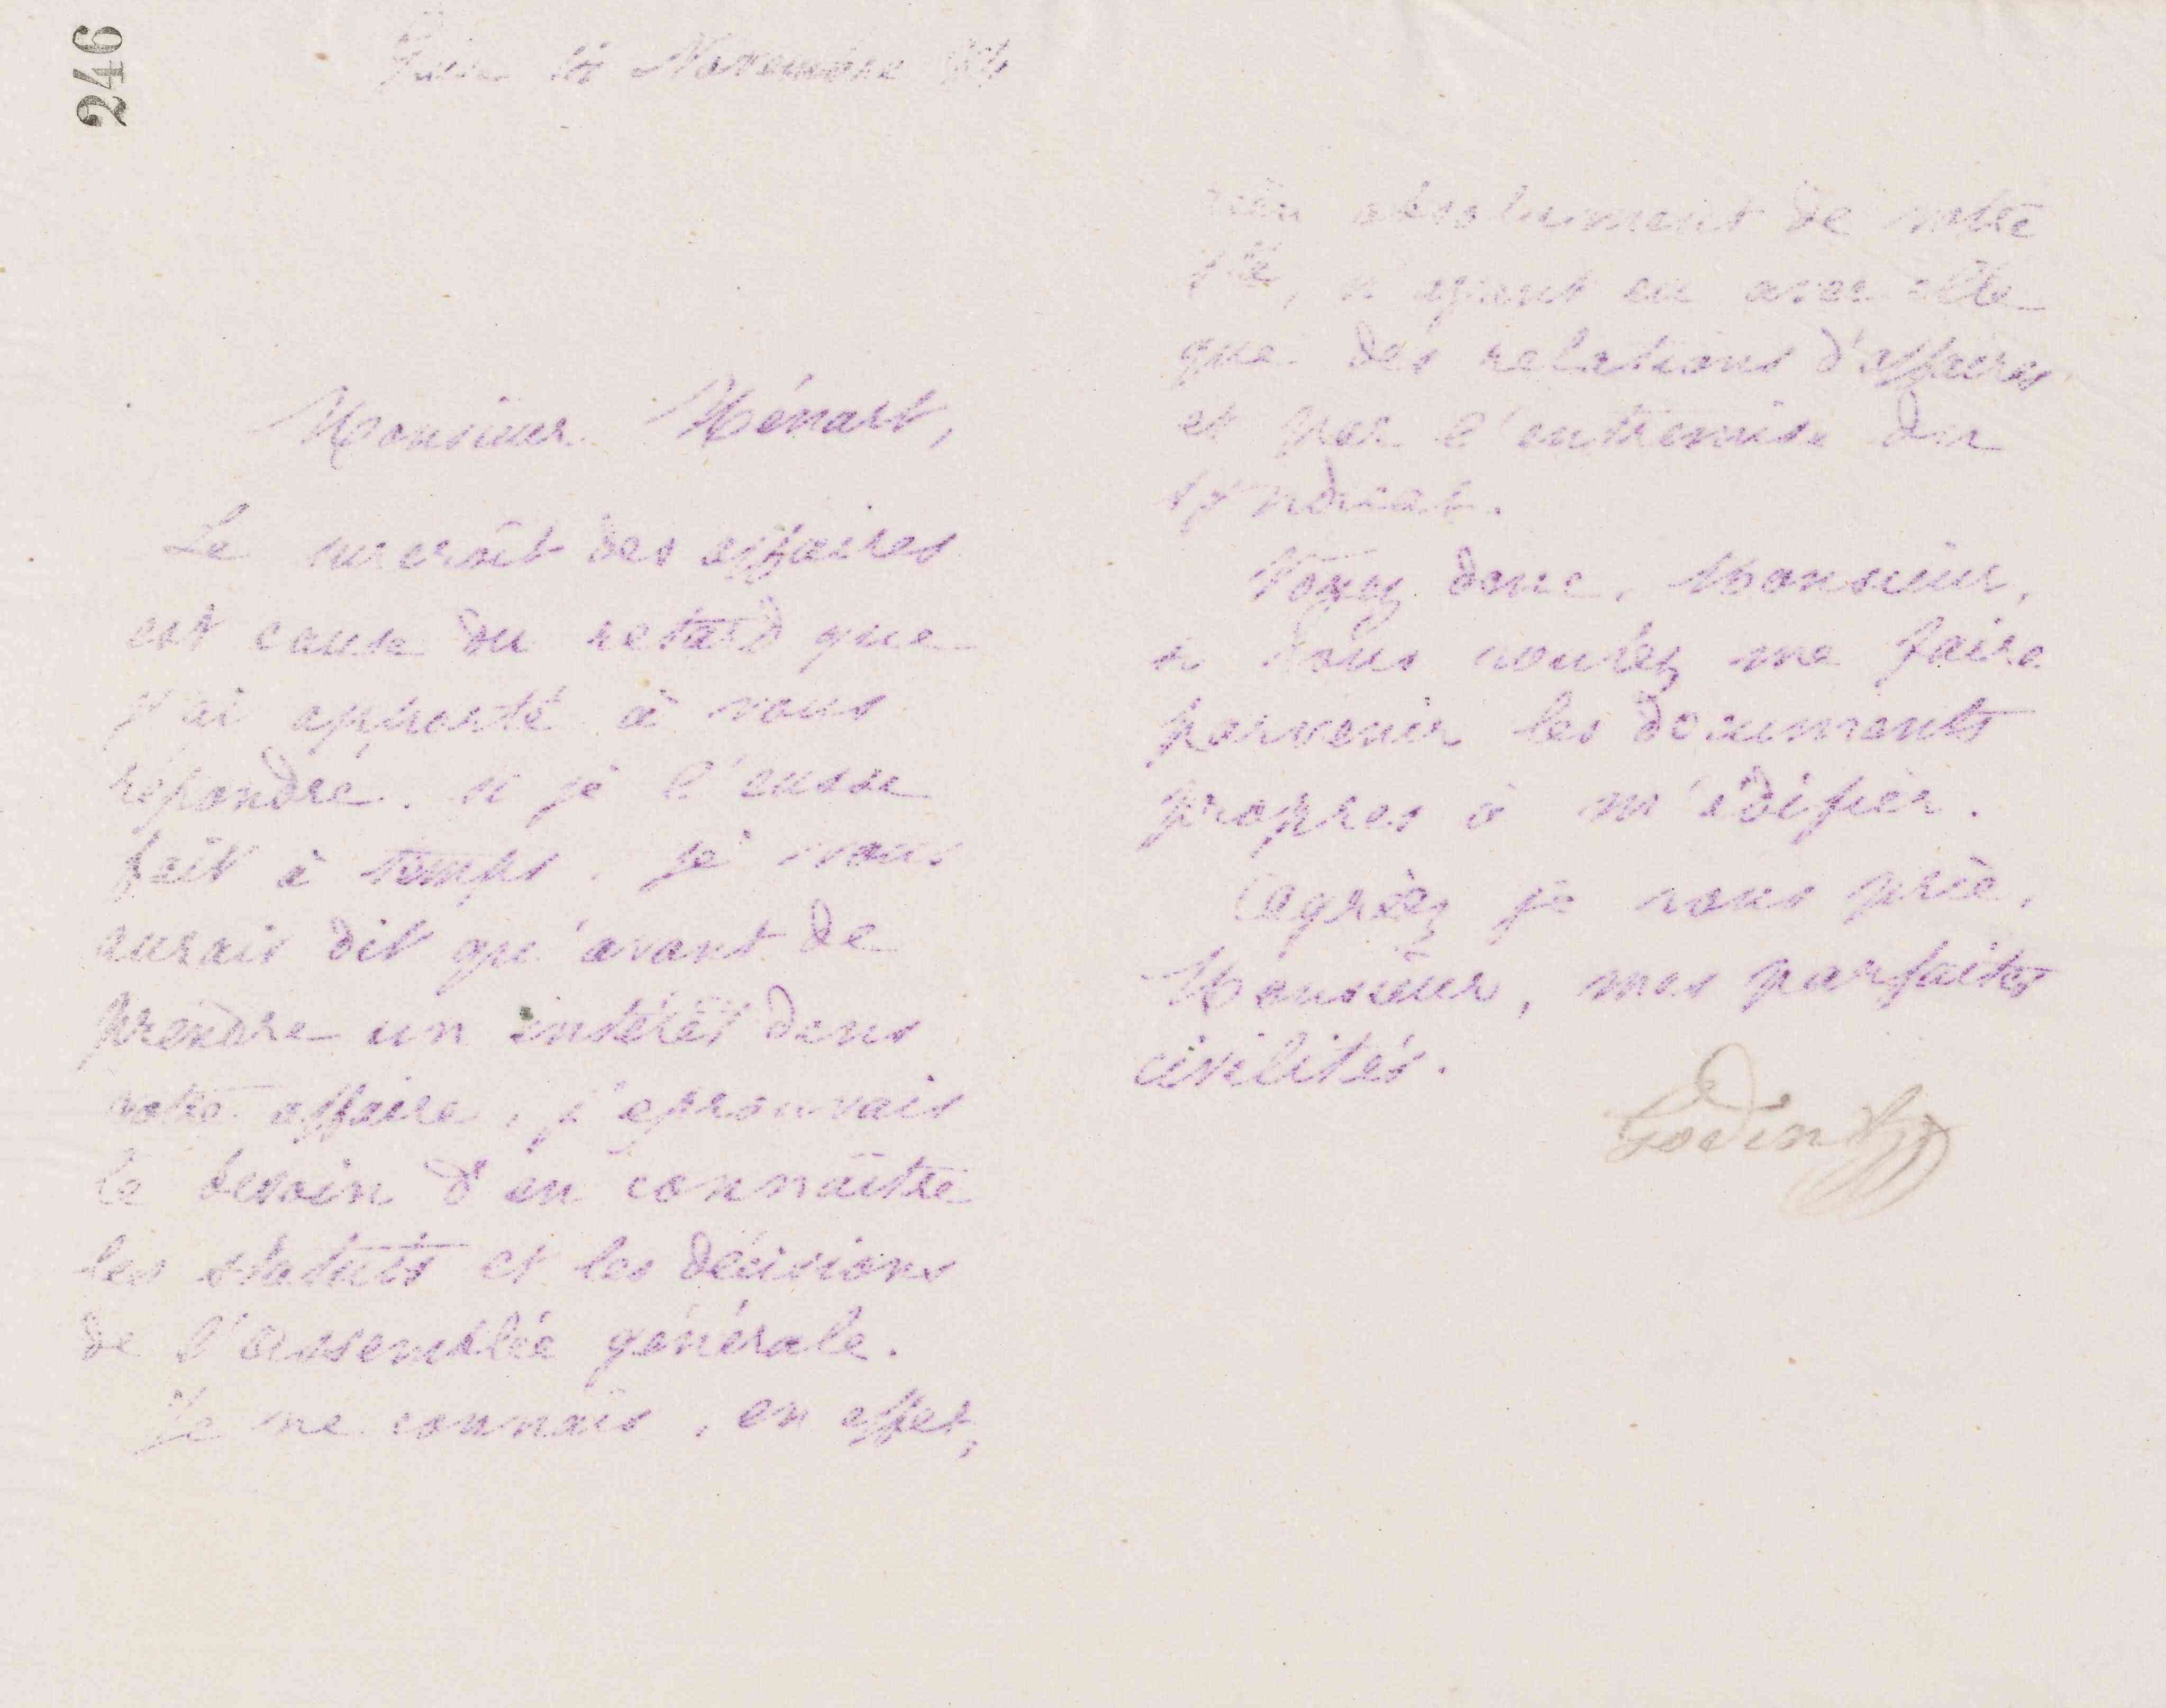 246
Guise Novembre 84
Monsieur Ménart,
Le surcroît des affaires
est cause du retard que
j'ai apporté à vous
répondre. si je l'eusse
fait à temps. je vous
aurais dit qu'avant de
prendre un intérêt dans
votre affaire, j'éprouvais
le besoin d'en connaître
les statuts et les décisions
de l'assemblée générale.
Je ne connais, en effet,
rien absolument de votre
Sté, n'ayant eu avec elle
que des relations d'affaires
et par l'entremise du
syndicat.
Voyez donc, Monsieur,
si vous voulez me faire
parvenir les documents
propres à m'édifier.
Agréez je vous prie,
Monsieur, mes parfaites
civilités.
Godin